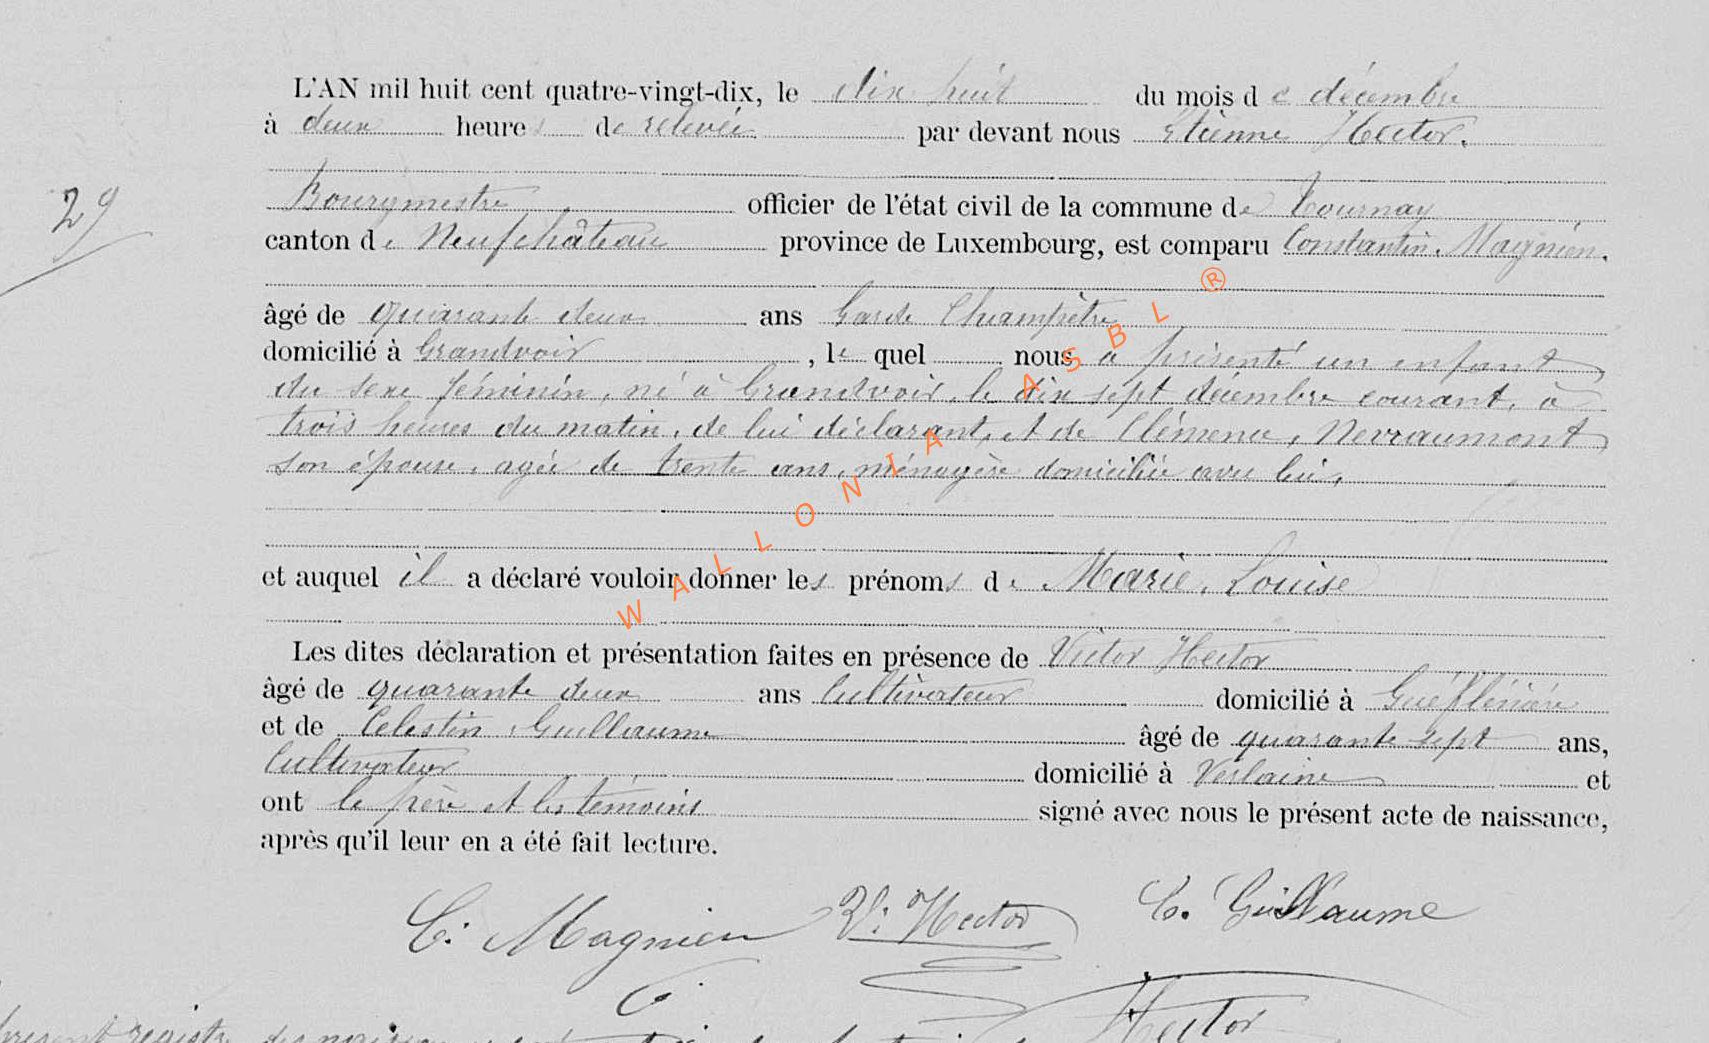 L'AN mil huit cent quatre-vingt-dix, le dix huit du mois de décembre
à deux heures de relevée par devant nous Etienne Hector.
29
Bourgmestre officier de l'état civil de la commune de Tournay
canton de Neufchâteau province de Luxembourg, est comparu Constantin. Magnien.
âgé de quarante deux ans Garde Champêtre
domicilié à Grandvoir, le quel nous a présenté un enfant
du sexe féminin, né à Grandvoir, le dix sept décembre courant, à
trois heures du matin, de lui déclarant, et de Clémence, Nerraumont
son épouse, agée de trente ans, ménagère domiciliée avec lui,
et auquel il a déclaré vouloir donner les prénoms de Marie, Louise
Les dites déclaration et présentation faites en présence de Victor Hector
âgé de quarante deux ans Cultivateur domicilié à
et de Celestin Guillaume âgé de quarante sept ans,
Cultivateur domicilié à Verlaine et
ont le père et les témoins signé avec nous le présent acte de naissance,
après qu'il leur en a été fait lecture.
C. Magnien V. Hector C. Guillaume
Hector
présent registre
WALLONIA ASBL ®